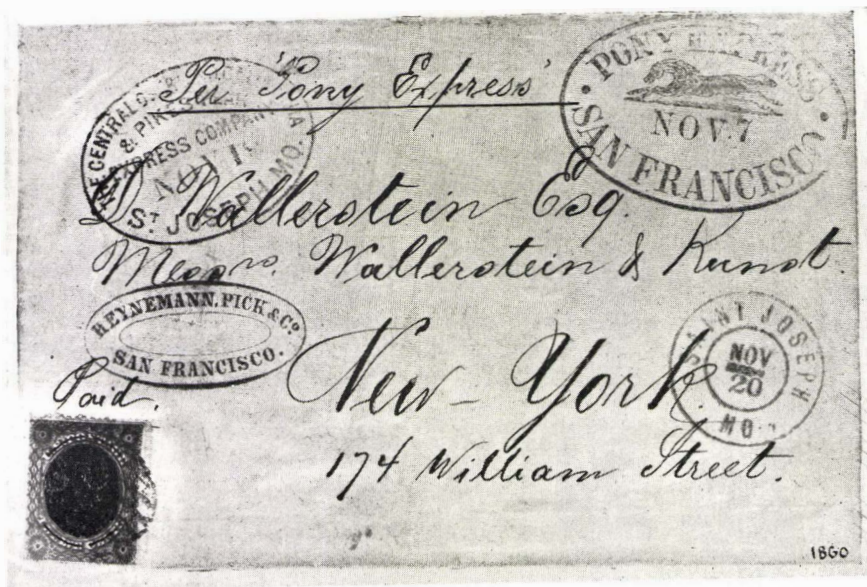 Per 'Pony Express'
PONY EXPRESS
NOV. 7
SAN FRANCISCO
THE CENTRAL
& PIKE
EXPRESS COMPANY
NOV
ST JOSEPH MO.
D. Wallerstein Esq.
Messrs. Wallerstein &
HEYNEMANN, PICK & Co
SAN FRANCISCO.
SAINT JOSEPH
NOV
20
MO.
Paid.
New-York.
174 William Street.
1860